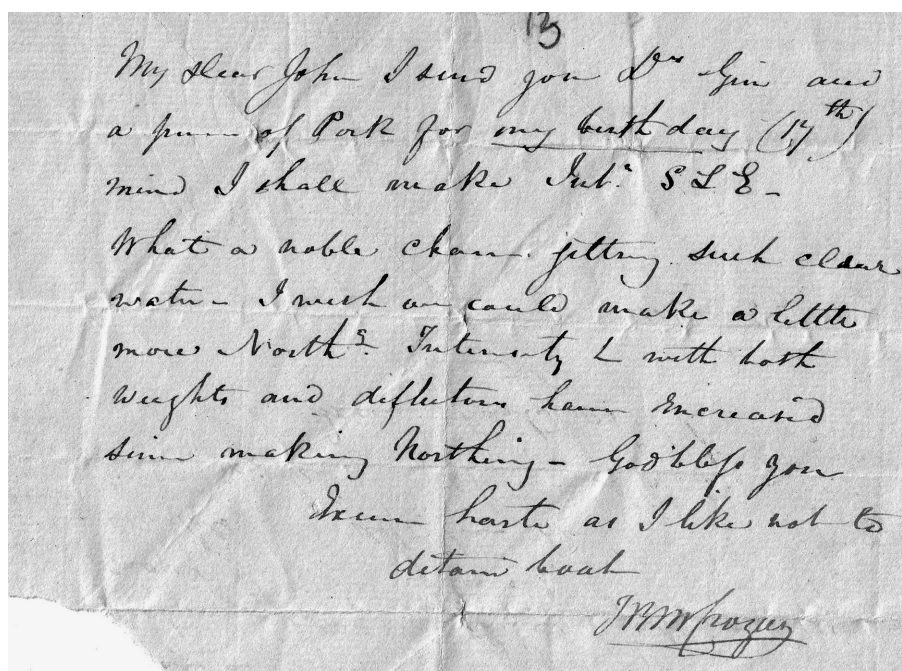 13
My dear John I send you Drs Gin and
a piece of Pork for my birth day (17th)
mind I shall make Intr. S L E -
What a noble chance getting such clear
water - I wish we could make a little
more Northg. Intensity L with both
weights and deflectors have increased
since making Northing - God bless you
Excuse haste as I like not to
detain boat
FRMCrozier